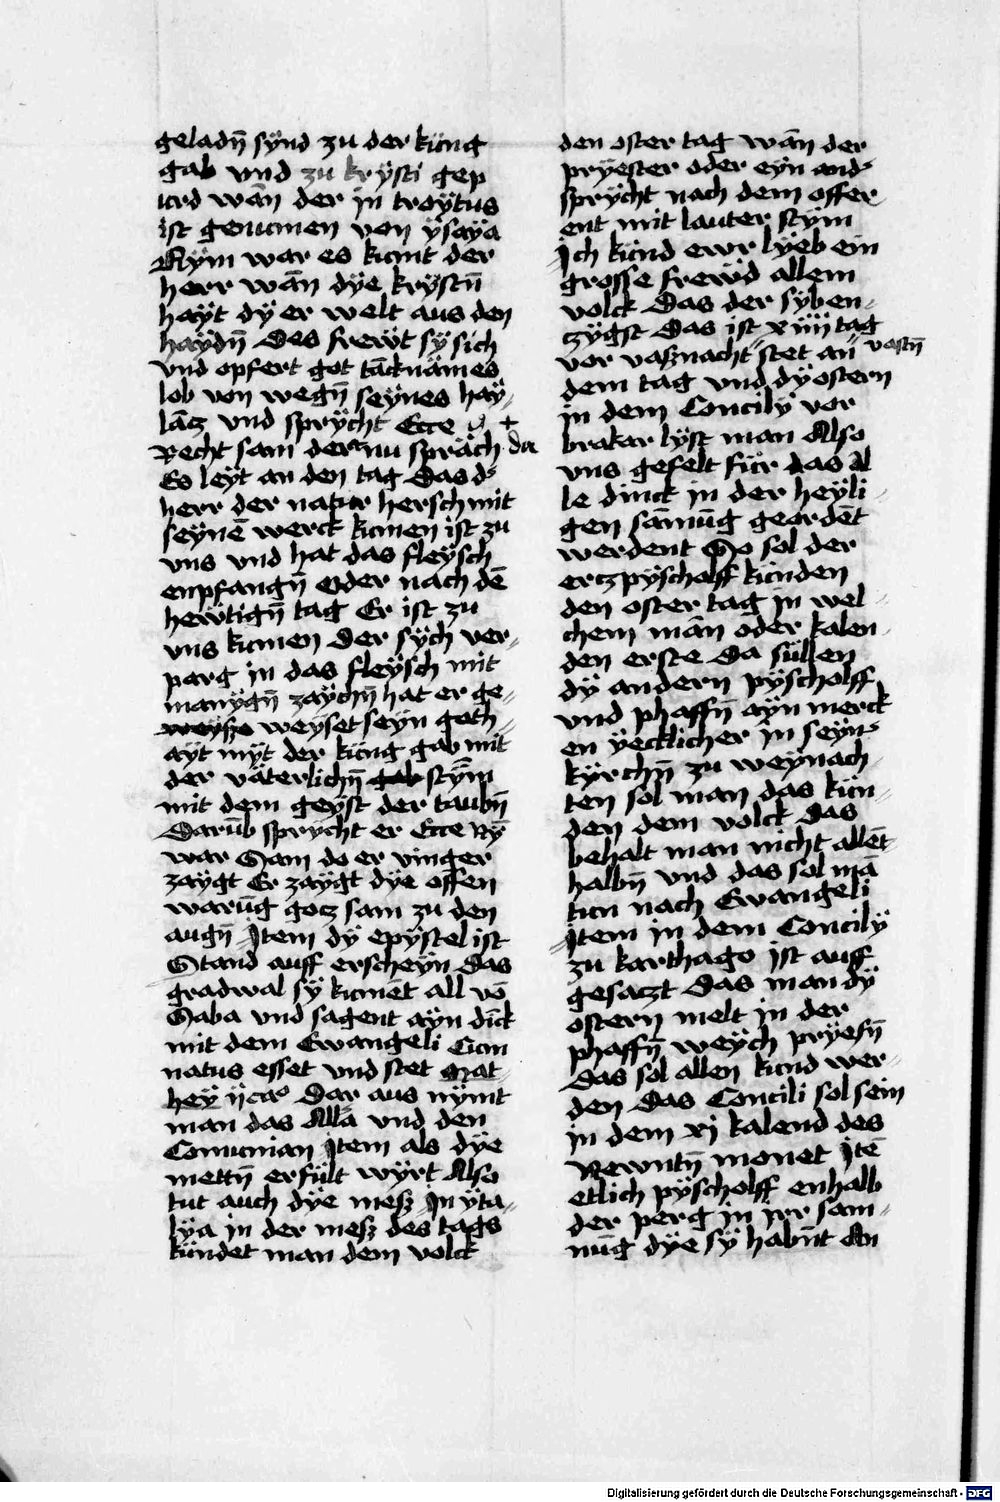 geladn̄ sÿnd zu der küng
gab vnd zu krÿsti gep
urd wān der in troÿtus
ist genumen von ÿsaÿa
Nÿm war es kumt der
herr wān dÿe krÿstn̄
haÿt dÿ er welt aus den
haÿdn̄ Des frewt sÿ sich
vnd opfert got tācknām es
lob von wegn̄ seÿnes haÿ
lācz vnd sprÿcht Ecce
Recht sam der nu sprāch da
Es leÿt an den tag Das ds
herr der natur hersch mit
seÿnē werck kumen ist zu
vns vnd hat das fleÿsch
enpfangn̄ Oder nach dē
hewtign̄ tag Er ist zu
vns kumen Der sÿch ver
parg in das fleÿsch mit
manÿgn̄ zaÿchn̄ hat er ge
weÿset seÿn goth
aÿt mÿt der küng gab mit
der väterlichn̄ gab stÿm
mit dem geÿst der taubn̄
Darūb sprÿcht er Ecce Nÿ
war Sam do er vinger
zaÿgt Er zaÿgt dÿe offen
warūg gotz sam zu den
augn̄ Item dÿ epÿstel ist
Stand auff erscheÿn Das
gradwal sÿ kumēt all vō
Saba vnd sagent aÿn dīck
mit dem Ewangeli Cum
natus esset vnd stet Mat
heÿ ijca° Dar aus nÿmt
man das Alla vnd den
Comunian Item als dÿe
mettn̄ erfült wÿrt Also
tut auch dÿe mesz In ÿta
lÿa in der mesz des tags
kündet man dem volck
den oster tag wān der
prÿester oder eÿn ands
sprÿcht nach dem offer
ent mit lauter stÿm
Ich künd ewr lÿeb ein
grosse frewd allem
volck Das der sÿben
zÿgst Das ist xiiij tag
vor vasznacht stet an vastn̄
dem tag vnd dÿ ostern
in dem Concilÿ vor
brakar lÿst man Also
vns gefelt für das al
le dinck in der heÿli
gen sāmūg geordēt
werdent So sol der
erczpÿscholff künden
den oster tag in wel
chem mān oder kalen
den erste Da süllen
dÿ andern pÿscholff
vnd phaffn̄ aÿn merck
en ÿecklicher in seÿns
kÿrchn̄ zu weÿnach
ten sol man das kün
den dem volck Das
behalt man nicht allēt
halbn̄ vnd das sol mā
tun nach Ewangeli
Item in dem Concilÿ
zu karthago ist auff
gesaczt Das man dÿ
ostern melt in der
phaffn̄ weÿch prÿefn̄
Das sol allen kund wer
den Das Concili sol sein
in dem xj kalend des
Newntn̄ monet Itē
etlich pÿscholff enhalb
der perg in irr sam
nūg dÿe sÿ habn̄t An